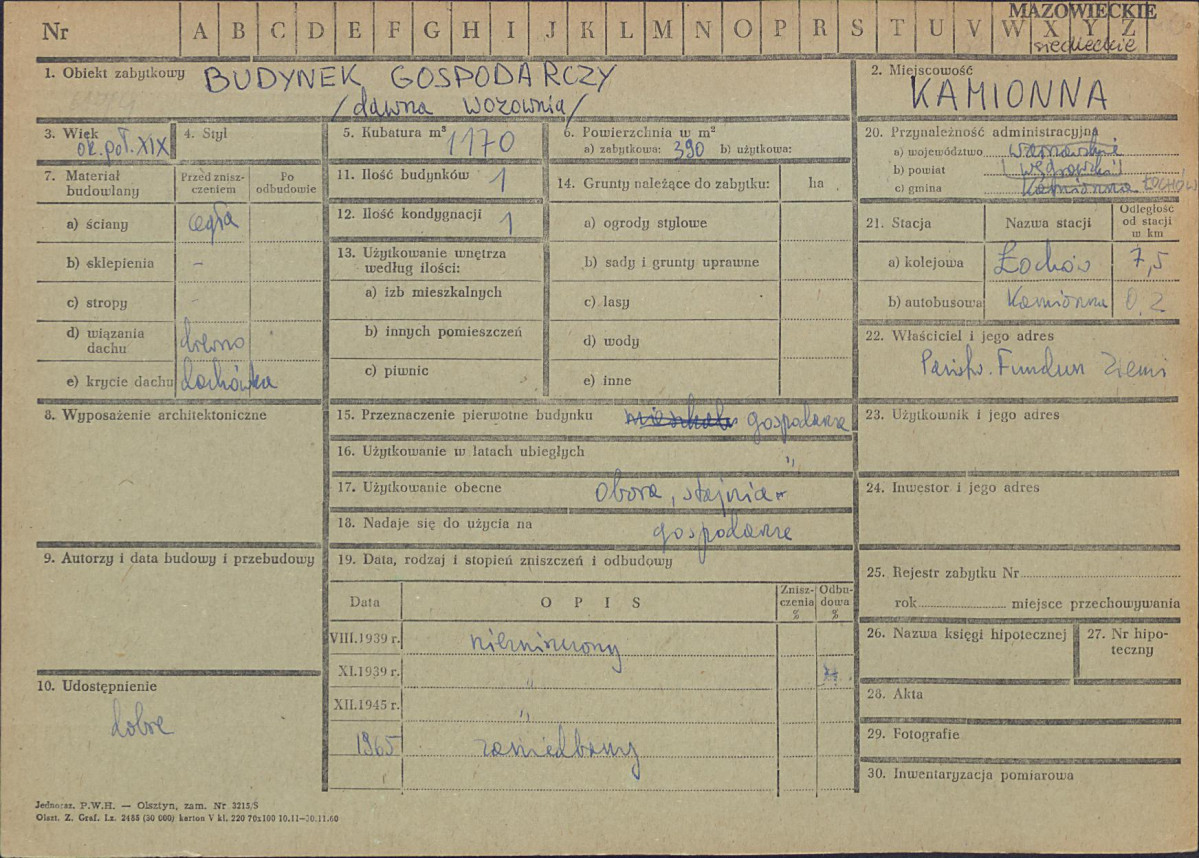 MAZOWIECKIE
Nr A B C D E F G H I J K L M N O P R S T U V W X Y Z
siedleckie
1. Obiekt zabytkowy BUDYNEK GOSPODARCZY
/dawna wozownia/
2. Miejscowość
KAMIONNA
3. Wiek
ok. poł. XIX
4. Styl
5. Kubatura m³ 1170
6. Powierzchnia w m²
a) zabytkowa: 390 b) użytkowa:
7. Materiał budowlany
Przed zniszczeniem
Po odbudowie
a) ściany cegła
b) sklepienia –
c) stropy –
d) wiązania dachu drewno
e) krycie dachu dachówka
8. Wyposażenie architektoniczne
9. Autorzy i data budowy i przebudowy
10. Udostępnienie
dobre
11. Ilość budynków 1
12. Ilość kondygnacji 1
13. Użytkowanie wnętrza
według ilości:
a) izb mieszkalnych
b) innych pomieszczeń
c) piwnic
14. Grunty należące do zabytku: ha
a) ogrody stylowe
b) sady i grunty uprawne
c) lasy
d) wody
e) inne
15. Przeznaczenie pierwotne budynku gospodarcze
16. Użytkowanie w latach ubiegłych "
17. Użytkowanie obecne obora, stajnia
18. Nadaje się do użycia na gospodarcze
19. Data, rodzaj i stopień zniszczeń i odbudowy
Data OPIS Zniszczenia % Odbudowa %
VIII.1939 r. niezniszczony
XI.1939 r. "
XII.1945 r. "
1965 zaniedbany
20. Przynależność administracyjna
a) województwo warszawskie
b) powiat (węgrowski)
c) gmina Kamionna ŁOCHÓW
21. Stacja Nazwa stacji Odległość od stacji w km
a) kolejowa Łochów 7,5
b) autobusowa Kamionna 0,2
22. Właściciel i jego adres
Państw. Fundusz Ziemi
23. Użytkownik i jego adres
24. Inwestor i jego adres
25. Rejestr zabytku Nr
rok miejsce przechowywania
26. Nazwa księgi hipotecznej
27. Nr hipoteczny
28. Akta
29. Fotografie
30. Inwentaryzacja pomiarowa
Jednoraz. P.W.H. — Olsztyn, zam. Nr 3215/S
Olszt. Z. Graf. Lz. 2455 (30 000) karton V kl. 220 70x100 10.11—30.11.60